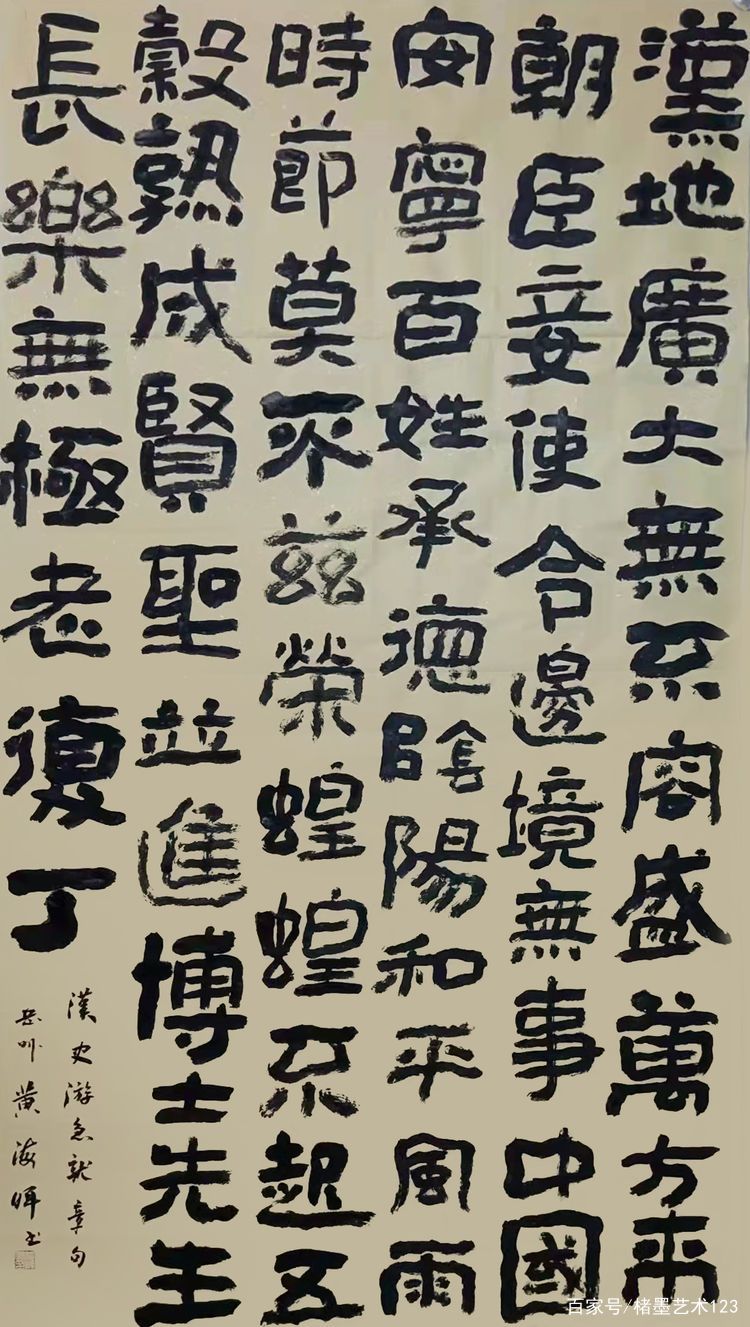 漢地廣大無不容盛萬方來
朝臣妾使令邊境無事中國
安寧百姓承德陰陽和平風雨
時節莫不茲榮蝗蝗不起五
穀熟成賢聖並進博士先生
長樂無極老復丁
漢史游急就章句
岳州黄海书
百家号/楮墨艺术123